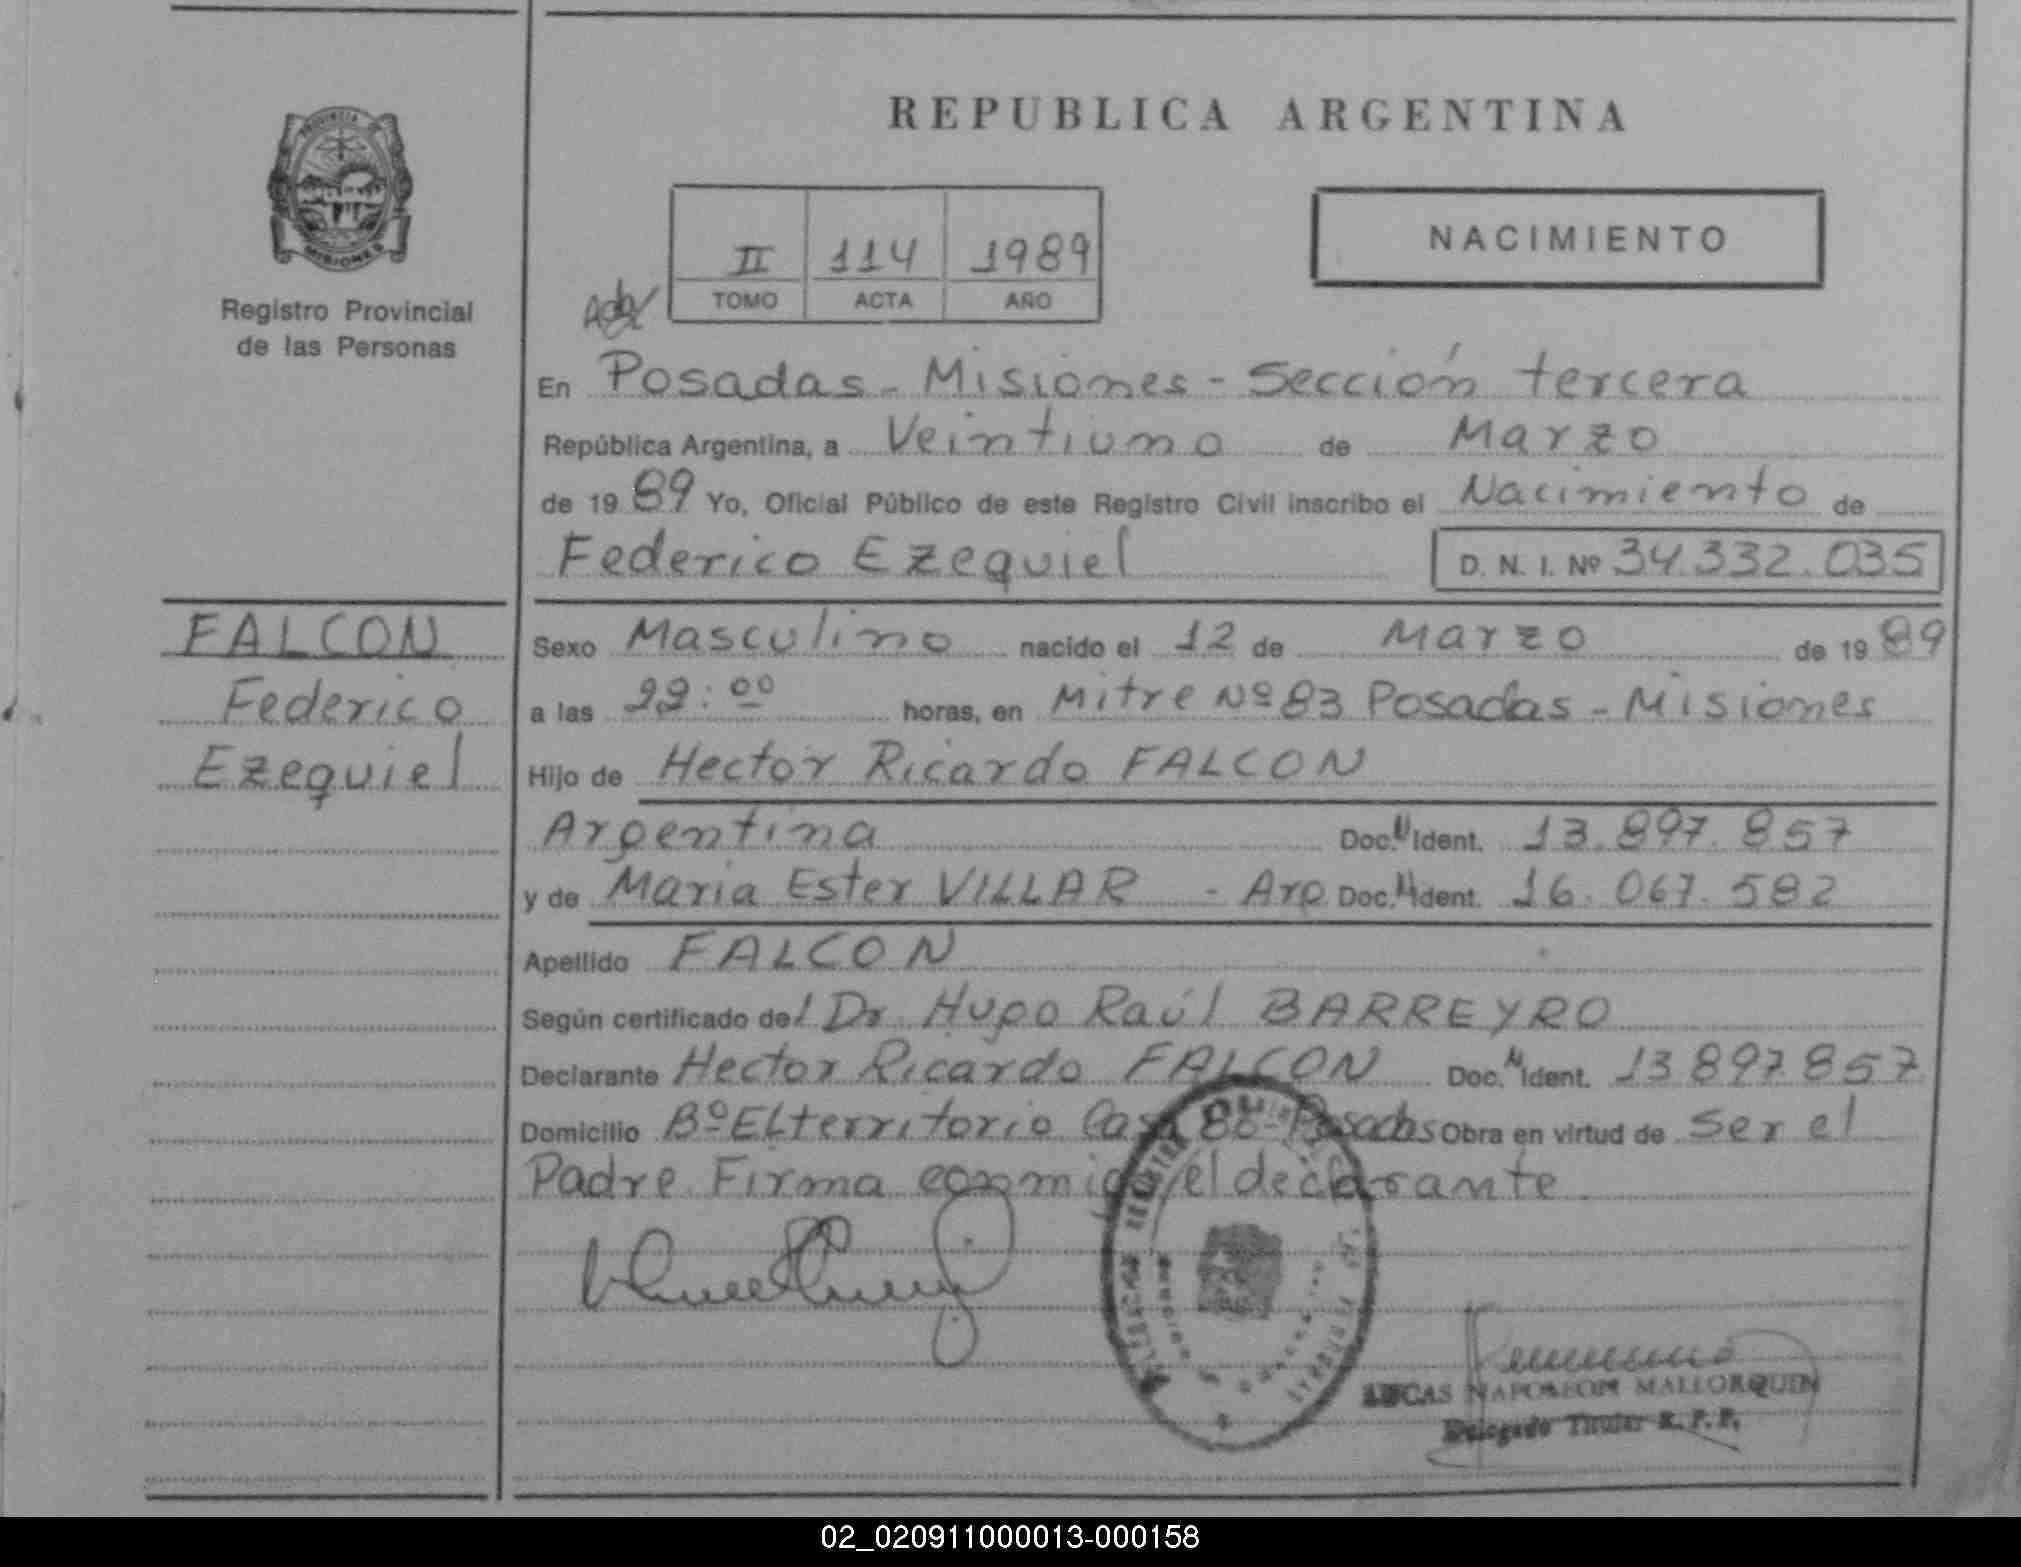 PROVINCIA DE
MISIONES
Registro Provincial
de las Personas
REPUBLICA ARGENTINA
II 114 1989
TOMO ACTA AÑO
NACIMIENTO
En Posadas - Misiones - Sección tercera
República Argentina, a Veintiuno de Marzo
de 1989 Yo, Oficial Público de este Registro Civil inscribo el Nacimiento de
Federico Ezequiel D. N. I. Nº 34.332.035
FALCON
Federico
Ezequiel
Sexo Masculino nacido el 12 de Marzo de 1989
a las 22:00 horas, en Mitre Nº 83 Posadas - Misiones
Hijo de Hector Ricardo FALCON
Argentina Doc. N Ident. 13.897.857
y de Maria Ester VILLAR - Arg. Doc. N Ident. 16.067.582
Apellido FALCON
Según certificado del Dr. Hugo Raúl BARREYRO
Declarante Hector Ricardo FALCON Doc. N Ident. 13897857
Domicilio Bº El territorio Casa 88 - Posadas Obra en virtud de ser el
Padre. Firma conmigo el declarante.
LUCAS NAPOLEON MALLORQUIN
Delegado Titular R. P. P.
02_020911000013-000158